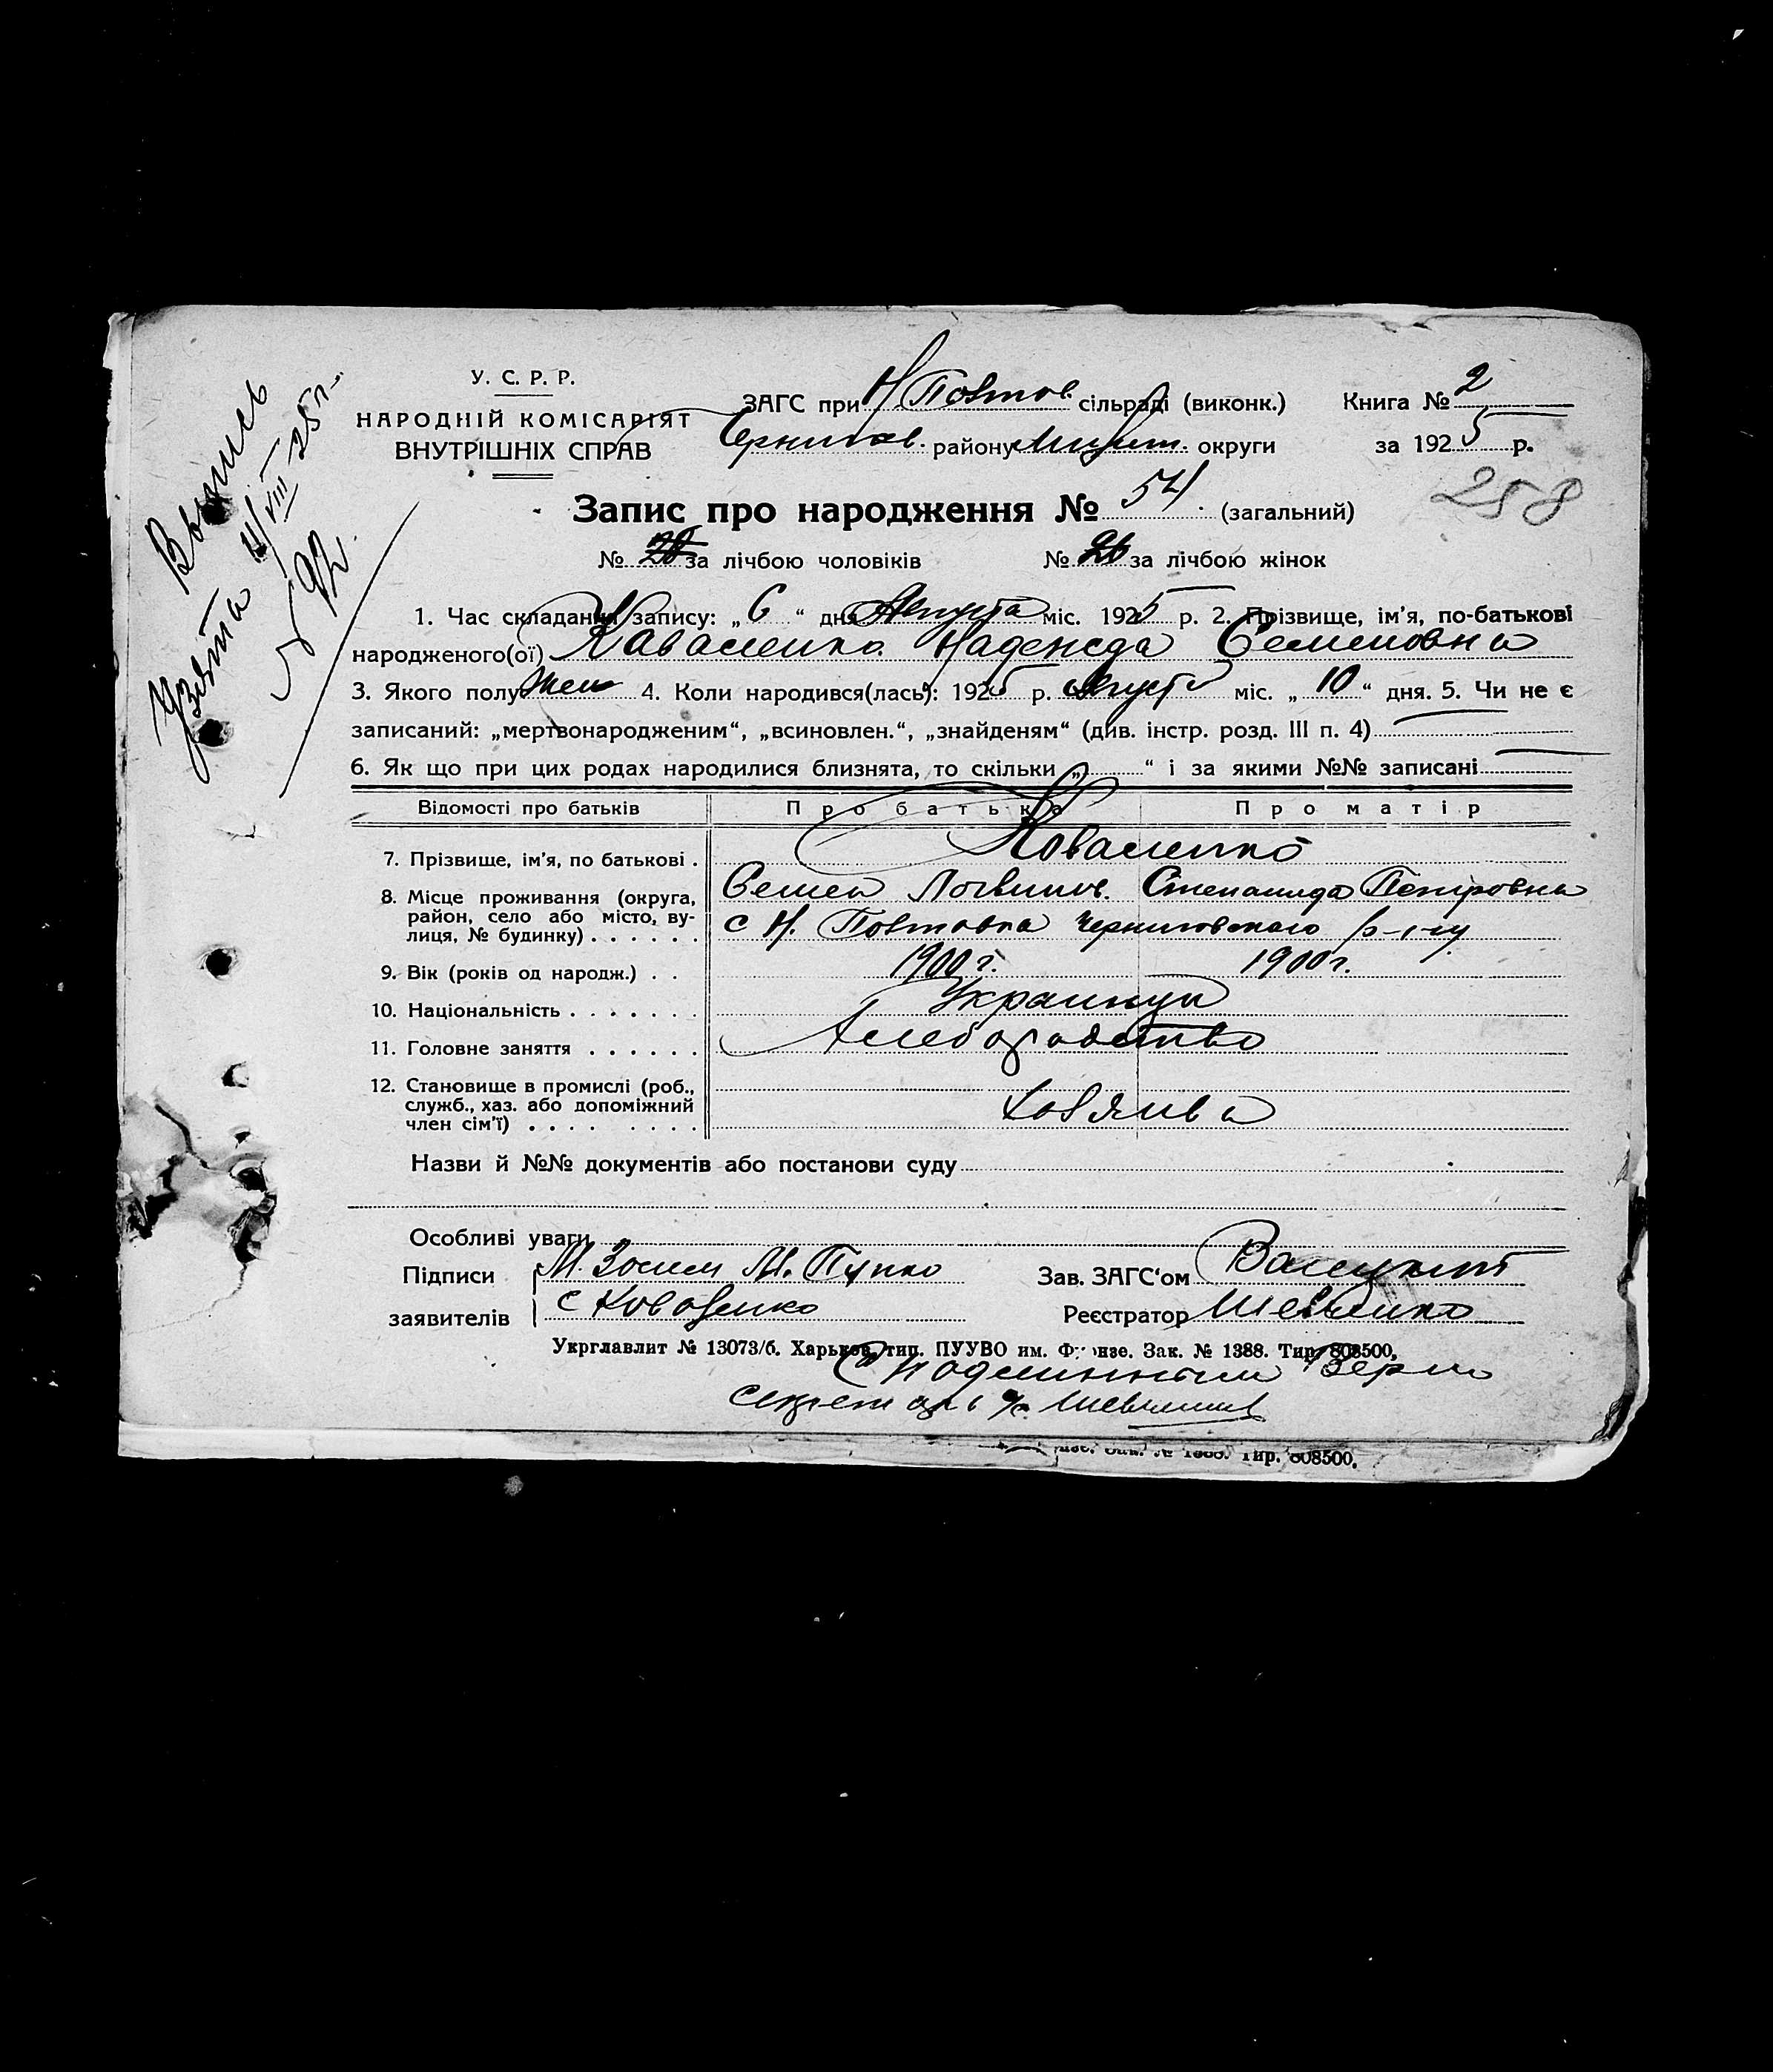 У. С. Р. Р.
НАРОДНІЙ КОМІСАРІЯТ
ВНУТРІШНІХ СПРАВ
ЗАГС при Н Полтов. сільраді (виконк.)
Книга № 2
Чернигов. району округи
за 1925 р.
258
Выпись
Узята 11/VIII 25 г.
№ 92.
Запис про народження № 54. (загальний)
№ за лічбою чоловіків № 26 за лічбою жінок
1. Час складання запису: „6“ дня Августа міс. 1925 р. 2. Прізвище, ім'я, по-батькові
народженого(ої) Каваленко Надежда Семеновна
3. Якого полу жен 4. Коли народився(лась): 1925 р. Август міс. „10“ дня. 5. Чи не є
записаний: „мертвонародженим“, „всиновлен.“, „знайденям“ (див. інстр. розд. III п. 4)
6. Як що при цих родах народилися близнята, то скільки „ “ і за якими №№ записані
Відомості про батьків Про батька Про матір
7. Прізвище, ім'я, по батькові . Коваленко
8. Місце проживання (округа, Семен Логвинов. Степанида Петровна
район, село або місто, ву-
лиця, № будинку) . . . . . . с Н. Полтавка Черниговского р-ну
9. Вік (років од народж.) . . 1900 г. 1900 г.
10. Національність . . . . . . . Украинцы
11. Головне заняття . . . . . . Хлеборобство
12. Становище в промислі (роб.,
служб., хаз. або допоміжний
член сім'ї) . . . . . . . . Хозяива
Назви й №№ документів або постанови суду
Особливі уваги
Підписи М. Зосим М. Пупко Зав. ЗАГС'ом
заявителів С Коваленко Реєстратор Шевченко
Укрглавлит № 13073/б. Харьков, тип. ПУУВО им. Фрунзе. Зак. № 1388. Тир. 808500.
С подлинным Верно
Секретарь с/с
Зак. № 1388. Тир. 808500.